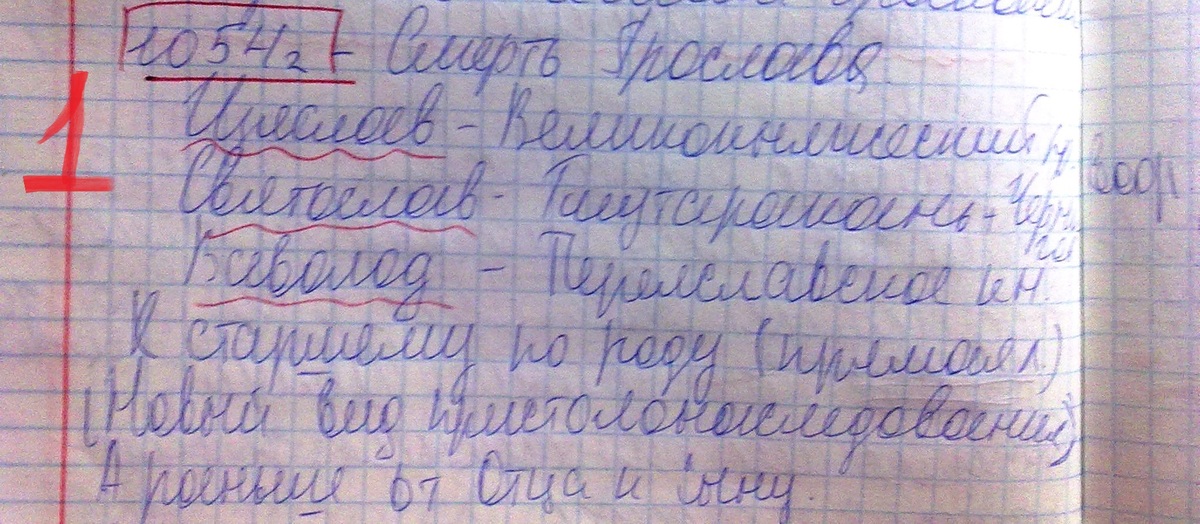 1054г - Смерть Ярослава
1
Изяслав - Великокняжеский
Святослав - Тмутаракань - Черн
Всеволод - Переяславское кн.
К старшему по роду
(Новый вид престолонаследования)
А раньше от Отца к сыну.